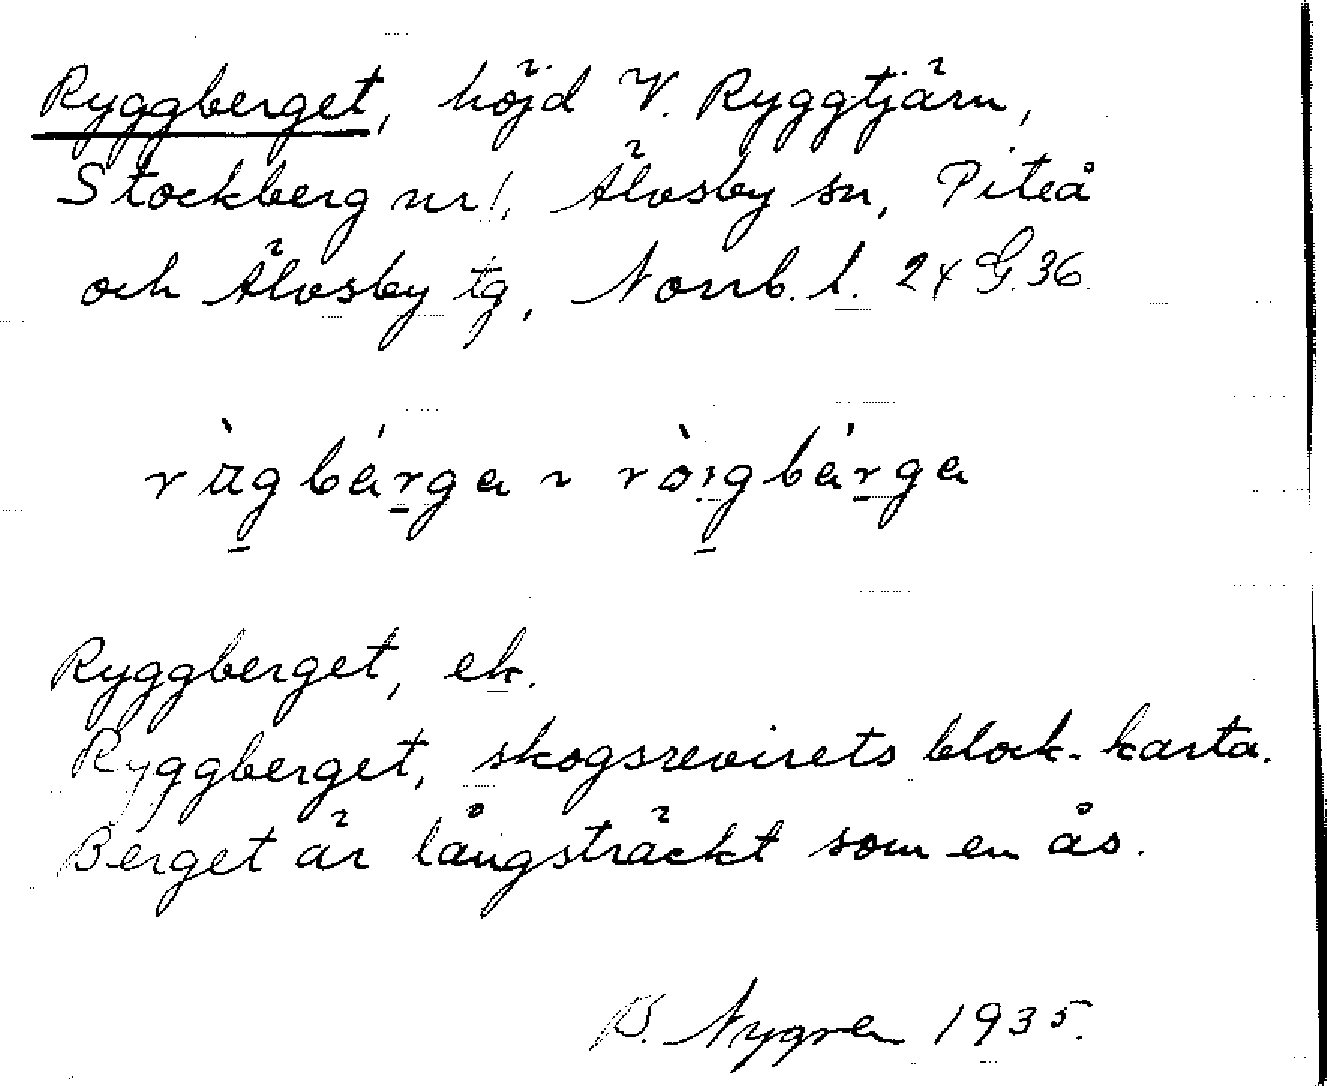 Ryggberget, höjd V. Ryggtjärn,
Stockberg nr 1, Älvsby sn, Piteå
och Älvsby tg, Norrb. l. 24 G. 36
rùgbárga ~ rò:gbárga
Ryggberget, ek.
Ryggberget, skogsrevirets block-karta.
Berget är långsträckt som en ås.
B. Nygren 1935.